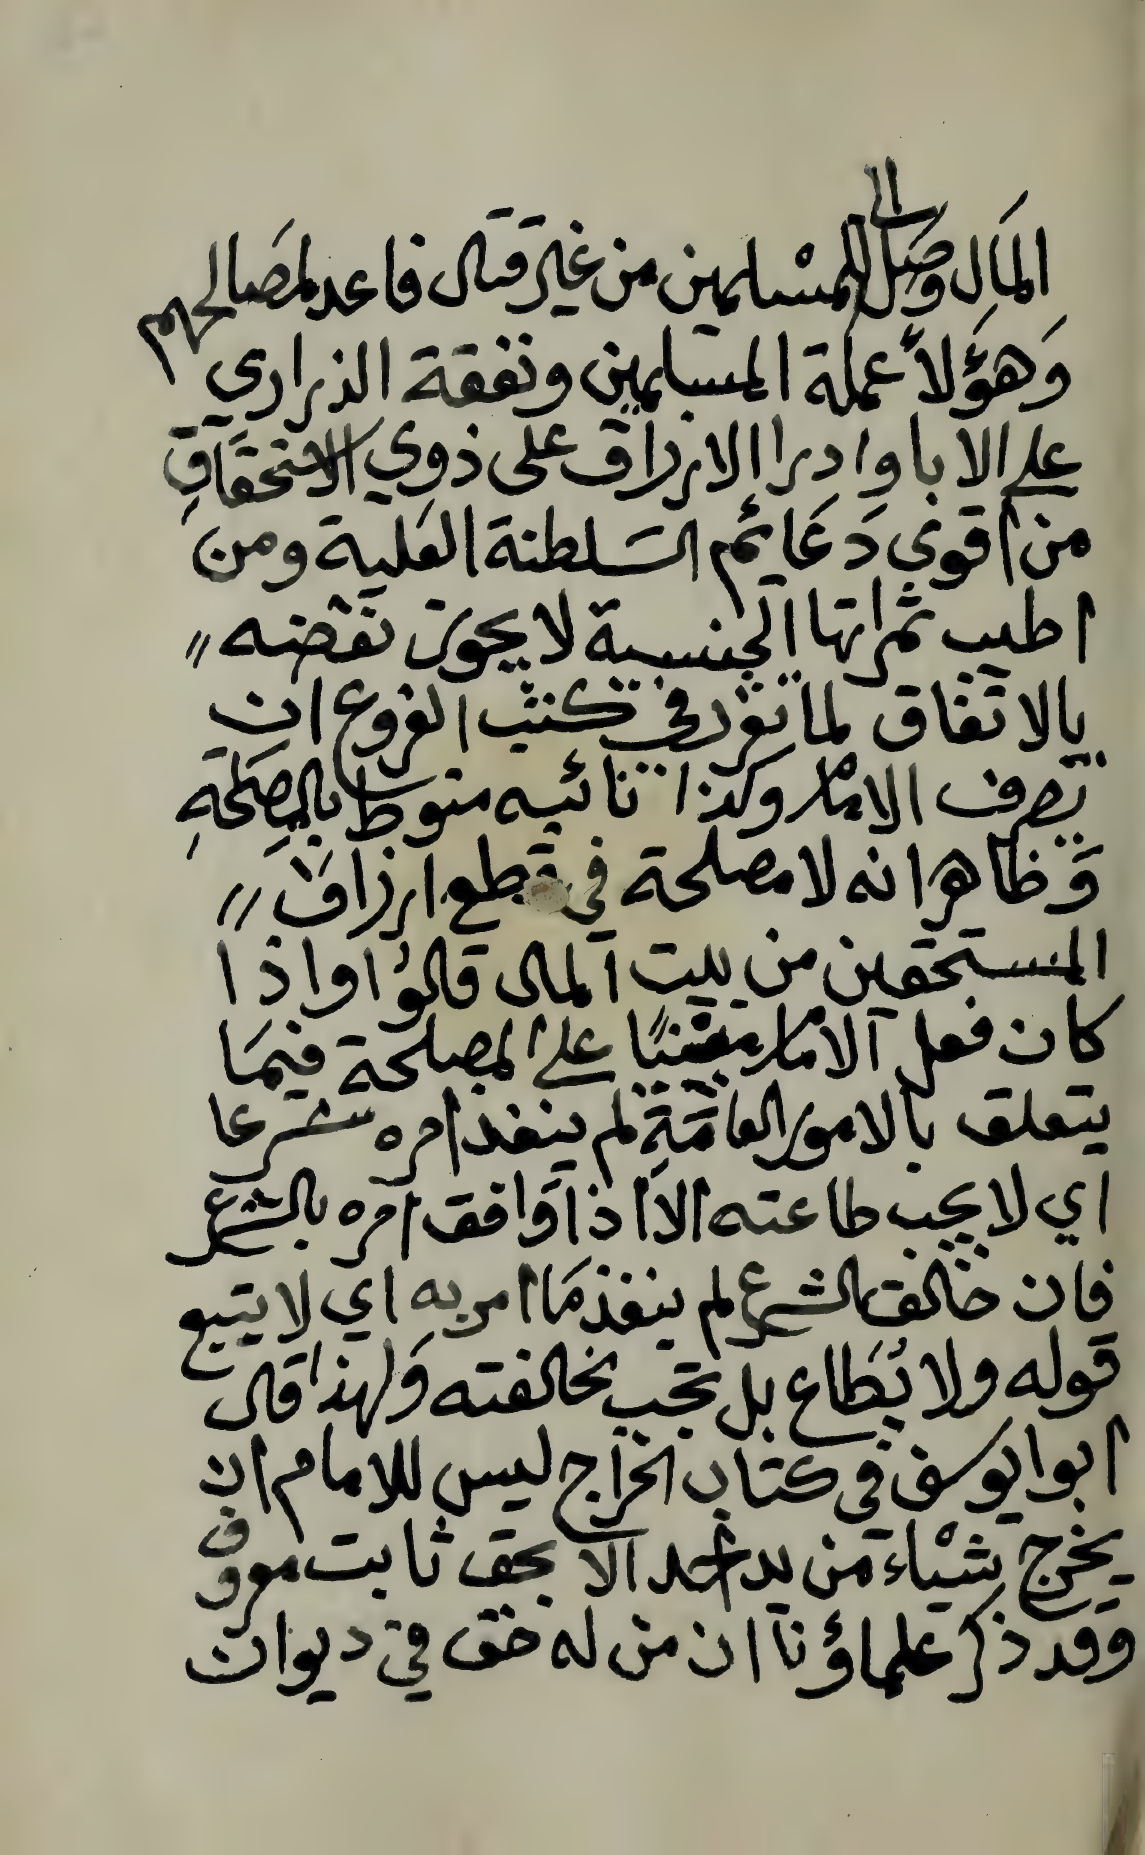 المال وصل الى المسلمين من غير قتال فاعد لمصالحهم
وهؤلاء عملة المسلمين ونفقة الذراري
على الابا وادرا الارزاق على ذوي الاستحقاق
من اقوى دعائم السلطنة العلية ومن
اطيب ثمراتها الجنسية لا يجوز نقضه
بالاتفاق لما تقرر في كتب الفروع ان
تصرف الامام وكذا نائبه منوط بالمصلحة
وظاهر انه لا مصلحة في قطع ارزاق
المستحقين من بيت المال قالوا واذا
كان فعل الامام مبنيا على المصلحة فيما
يتعلق بالامور العامة لم ينفذ امره شرعا
اي لا يجب طاعته الا اذا وافق امره بالشرع
فان خالف الشرع لم ينفذ ما امر به اي لا يتبع
قوله ولا يطاع بل تجب مخالفته ولهذا قال
ابوا يوسف في كتاب الخراج ليس للامام ان
يخرج شياء من يد احد الا بحق ثابت معروف
وقد ذكر علماؤنا ان من له حق في ديوان